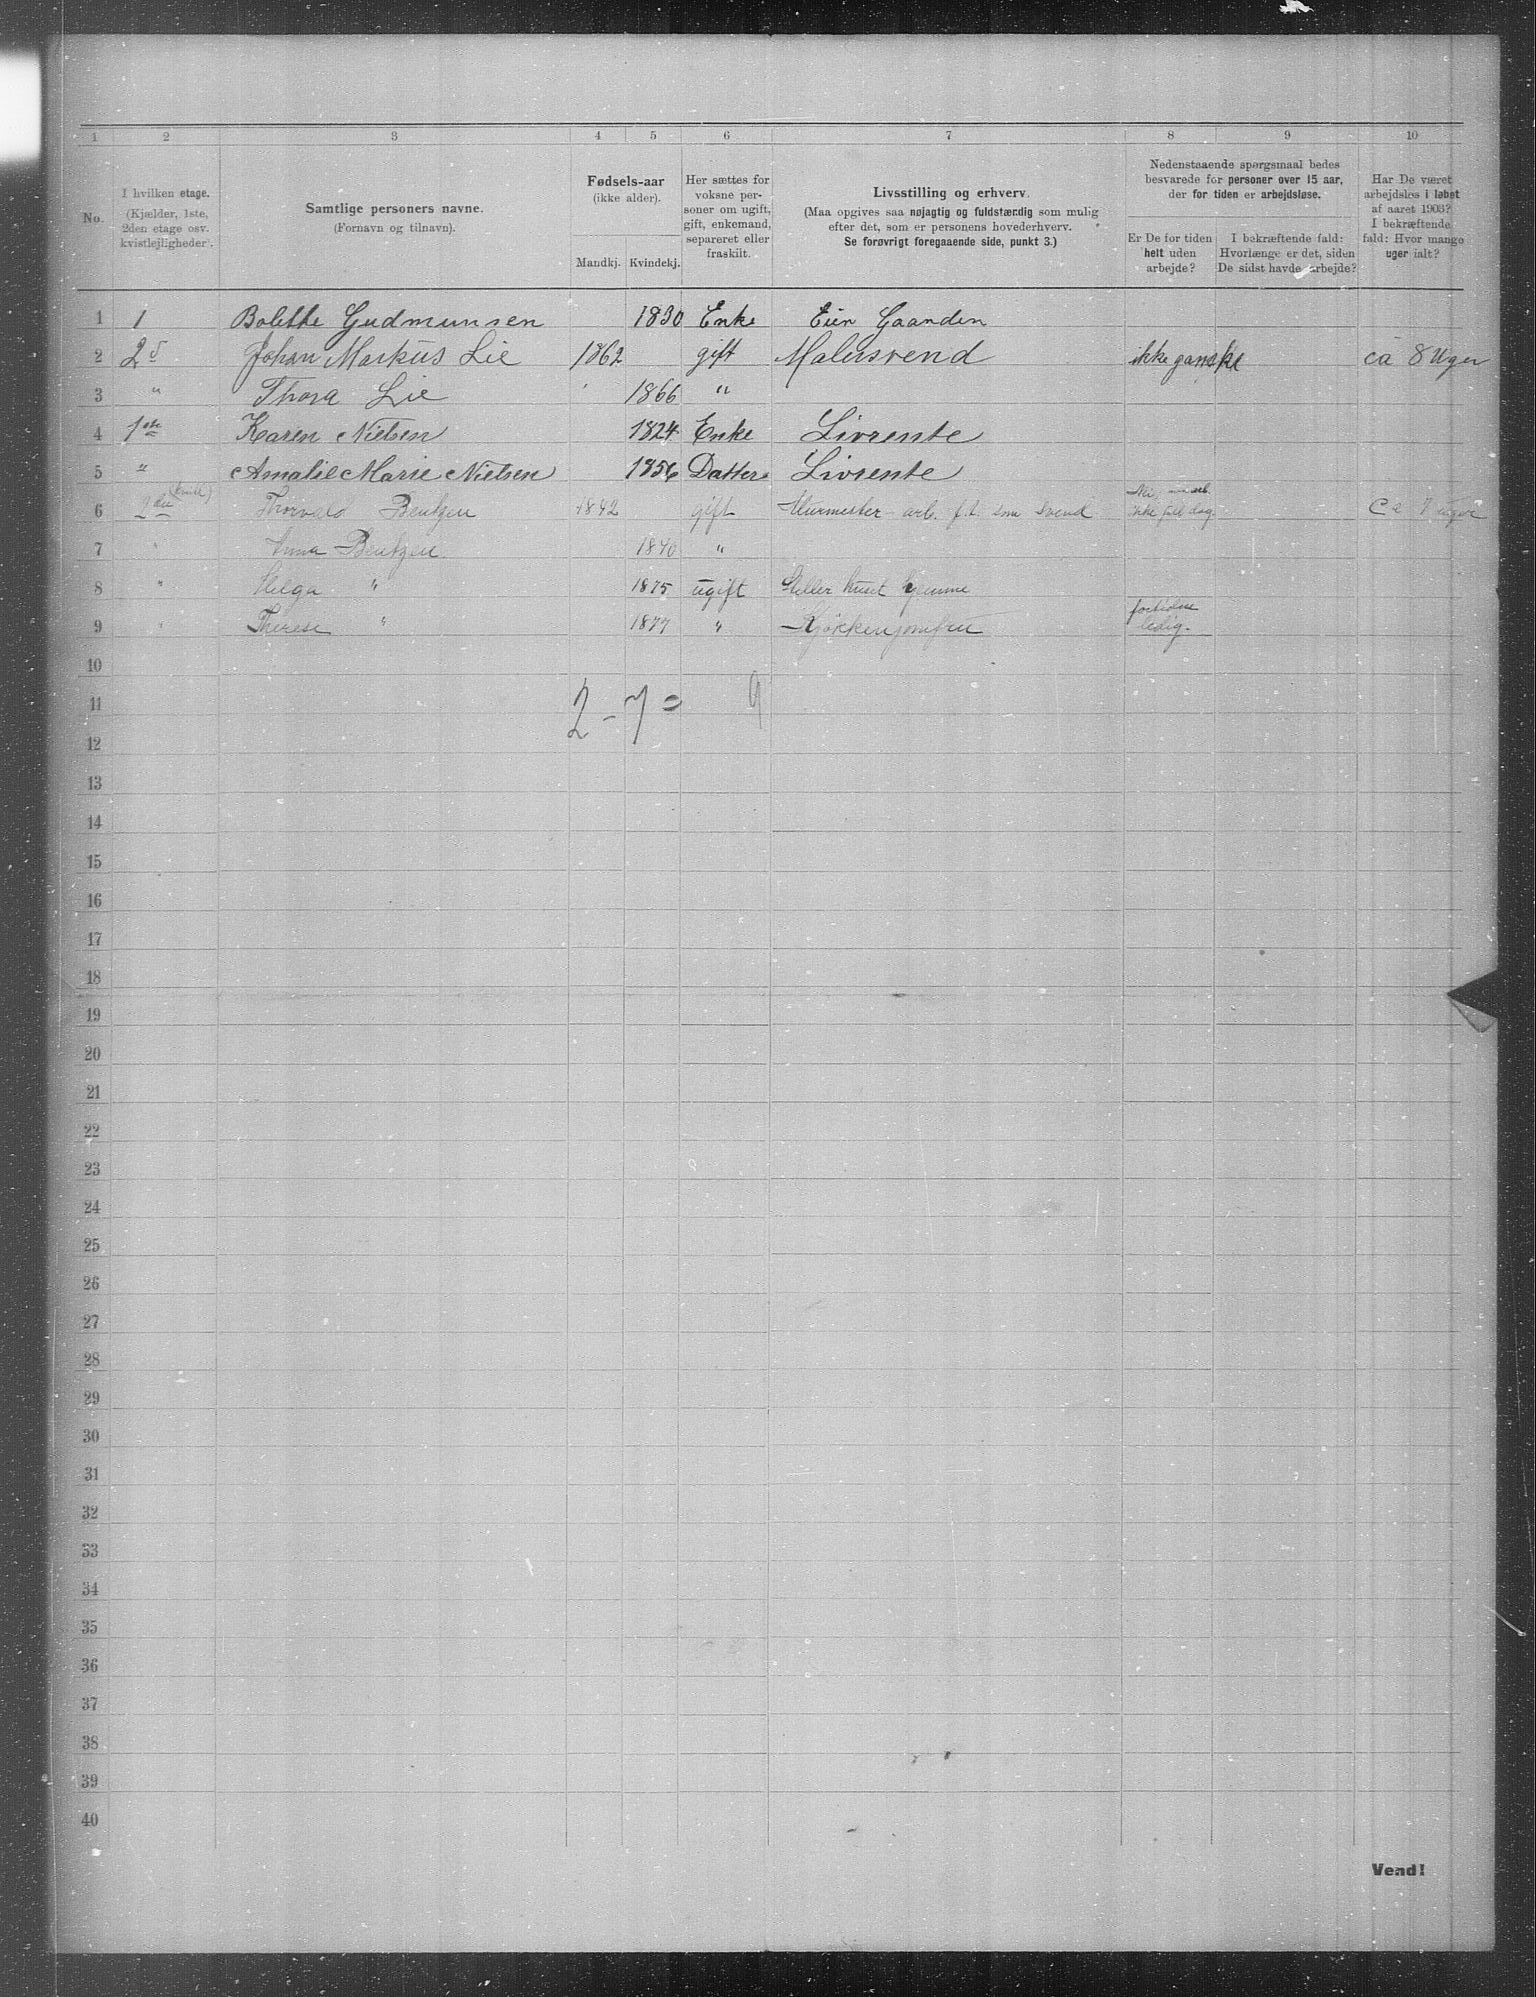 1 2 3 4 5 6 7 8 9 10
No.
I hvilken etage.
(Kjælder, 1ste,
2den etage osv.
kvistlejligheder).
Samtlige personers navne.
(Fornavn og tilnavn).
Fødsels-aar
(ikke alder).
Mandkj. Kvindekj.
Her sættes for
voksne per-
soner om ugift,
gift, enkemand,
separeret eller
fraskilt.
Livsstilling og erhverv.
(Maa opgives saa nøjagtig og fuldstændig som mulig
efter det, som er personens hovederhverv.
Se forøvrigt foregaaende side, punkt 3.)
Nedenstaaende spørgsmaal bedes
besvarede for personer over 15 aar,
der for tiden er arbejdsløse.
Er De for tiden
helt uden
arbejde?
I bekræftende fald:
Hvorlænge er det, siden
De sidst havde arbejde?
Har De været
arbejdsløs i løbet
af aaret 1903?
I bekræftende
fald: Hvor mange
uger ialt?
1 1 Bolette Gudmunsen 1830 Enke Eier Gaarden
2 2 Johan Markus Lie 1862 gift Malersvend ikke ganske ca 8 Uger
3 " Thora Lie 1866 "
4 1ste Karen Nielsen 1824 Enke Livrente
5 " Amalie Marie Nielsen 1856 Datter Livrente
6 2den Thorvald Bentzen 1842 gift Murmester arb. f.t. som svend Nei, ikke full dag. Ca 7 uger
7 " Anna Bentzen 1840 "
8 " Helga " 1875 ugift Steller huset hjemme
9 " Therese " 1877 " Kjøkkenjomfru fortiden ledig.
10
11
2 - 7 = 9
12
13
14
15
16
17
18
19
20
21
22
23
24
25
26
27
28
29
30
31
32
33
34
35
36
37
38
39
40
Vend!